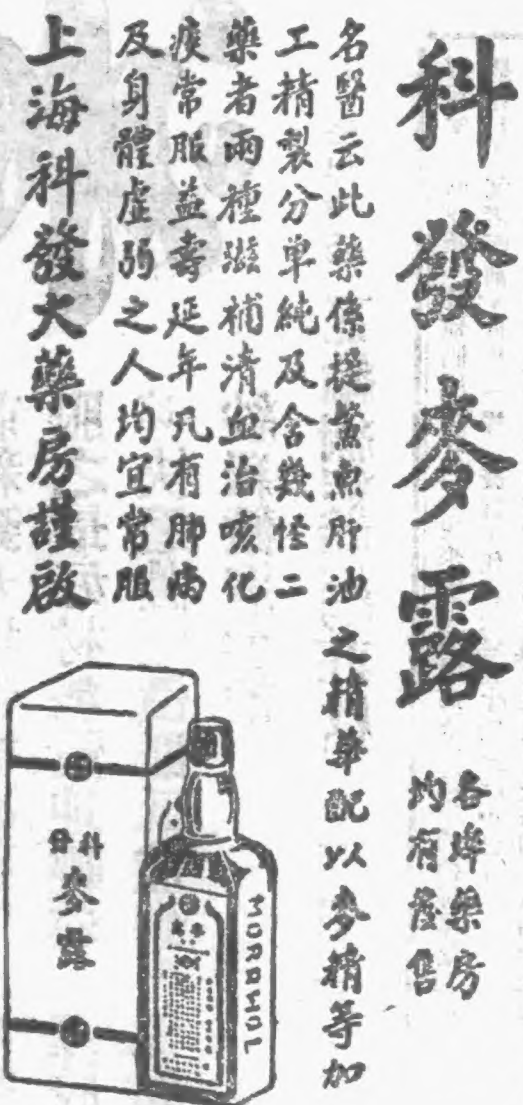 科發麥露
各埠藥房
均有發售
名醫云此藥係提鰵魚肝油之精華配以麥精等加
工精製分單純及含幾怪二
藥者兩種滋補清血治咳化
痰常服益壽延年凡有肺病
及身體虛弱之人均宜常服
上海科發大藥房謹啟
科發
麥露
MORRHOL